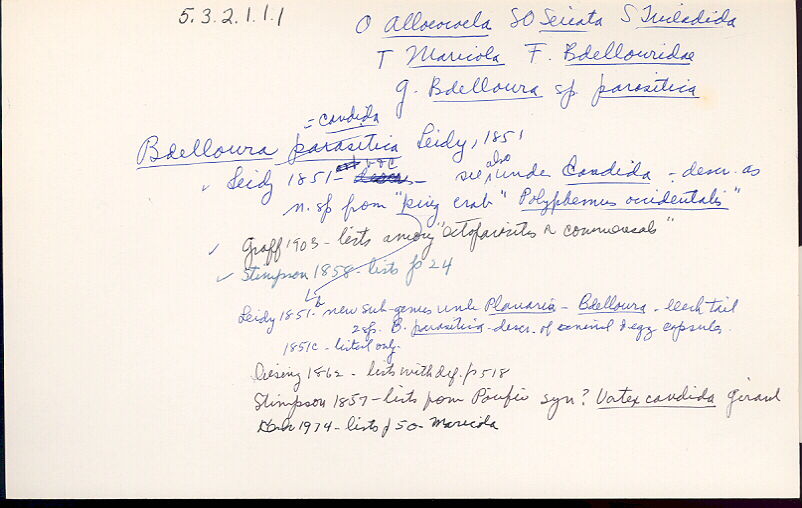 5.3.2.1.1.1
O Alloeocoela SO Seriata S Tricladida
T Maricola F. Bdellouridae
g. Bdelloura sp parasitica
= candida
Bdelloura parasitica Leidy, 1851
✓ Leidy 1851- a, b & c - see also under Candida - descr. as
n. sp from "king crab" Polyphemus occidentalis"
✓ Graff 1903 - lists among "Ectoparasites & commensals"
✓ Stimpson 1858 - lists p 24
Leidy 1851-b new sub-genus under Planaria - Bdelloura - leech tail
2 sps. B. parasitica - descr. of animal & egg capsules.
1851c - listed only.
Diesing 1862 - lists with def. p 518
Stimpson 1857 - lists from Pacific syn? Vatex candida Girard
1974 - lists p 50 Maricola